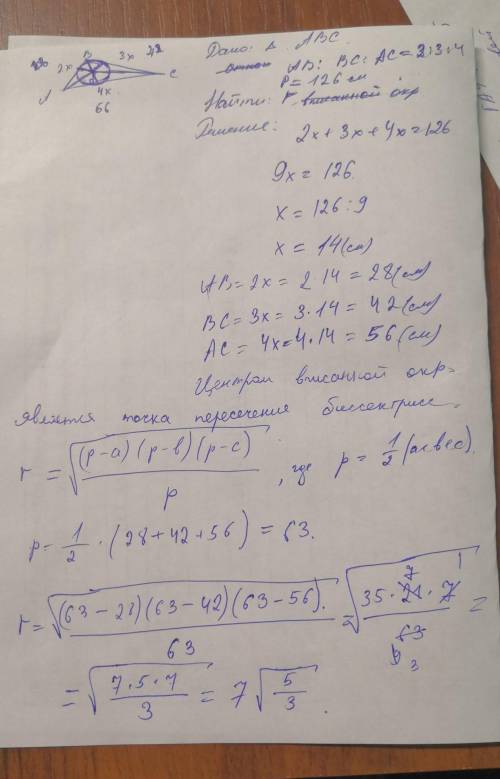 Дано: Δ ABC.
AB: BC: AC = 2:3:4
P = 126 см
Найти: r вписанной окр
B
2x
3x
42
A
C
4x
56
Решение:
2x + 3x + 4x = 126
9x = 126.
x = 126 : 9
x = 14 (см)
AB = 2x = 2·14 = 28 (см)
BC = 3x = 3·14 = 42 (см)
AC = 4x = 4·14 = 56 (см)
Центром вписанной окр-
является точка пересечение биссектрисс.
r = √((p-a)(p-b)(p-c)/p), где p = 1/2 (a+b+c).
p = 1/2 · (28+42+56) = 63.
r = √((63-28)(63-42)(63-56)/63) = √(35·21·7/63) =
= √(7·5·7/3) = 7√(5/3).